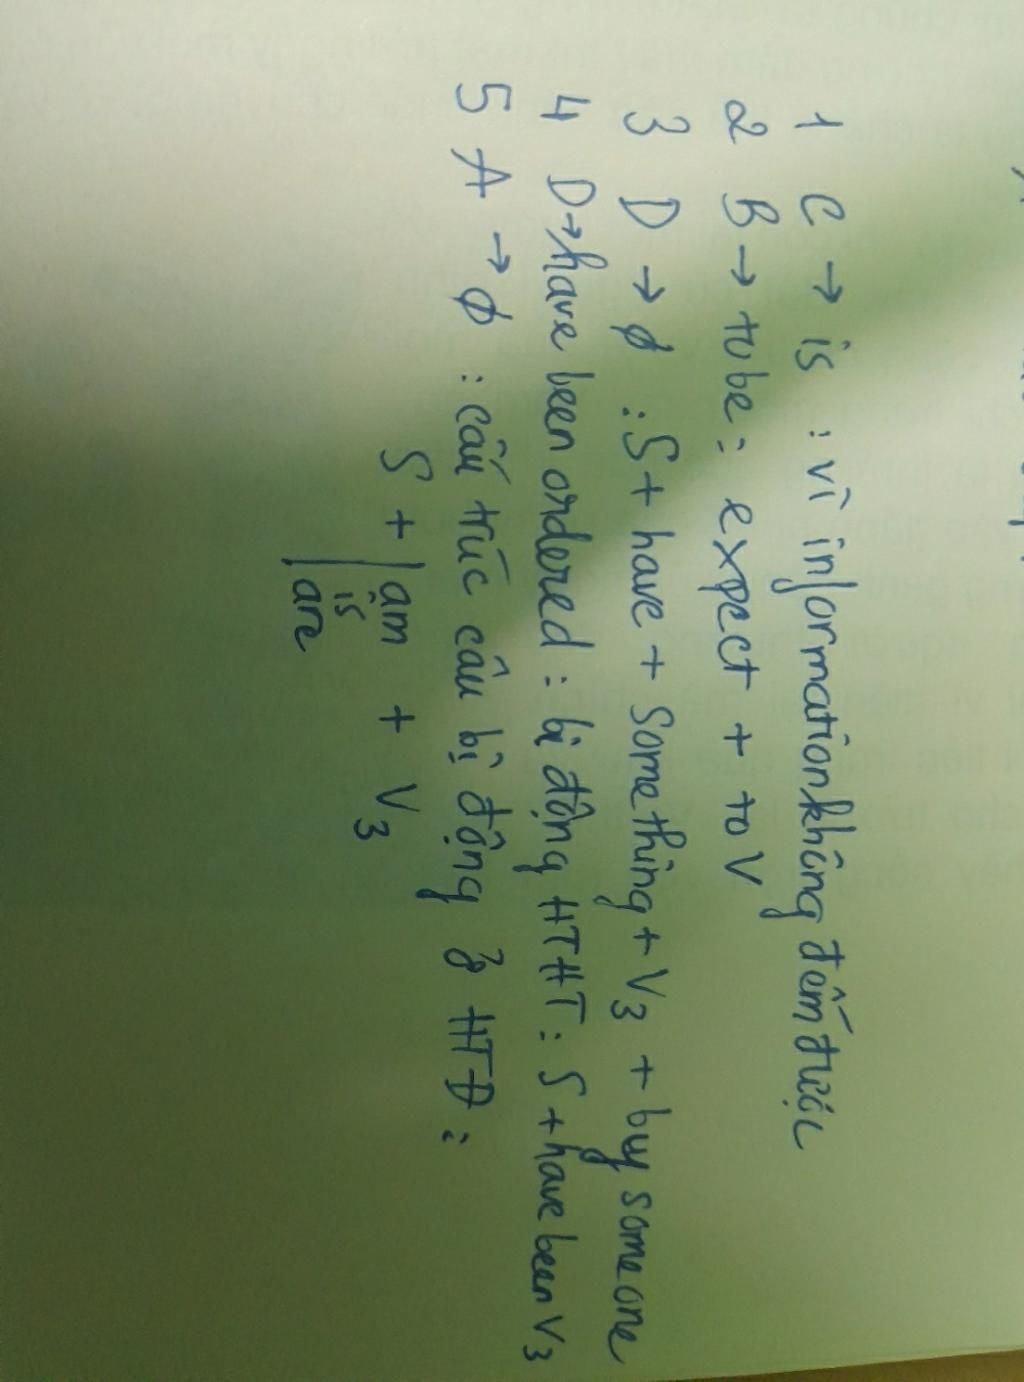 1 C → is : vì information không đếm được
2 B → to be : expect + to V
3 D → ∅ : S + have + something + V3 + by someone
4 D → have been ordered : bị động HTHT : S + have been V3
5 A → ∅ : cấu trúc câu bị động ở HTĐ :
S + am + V3
is
are